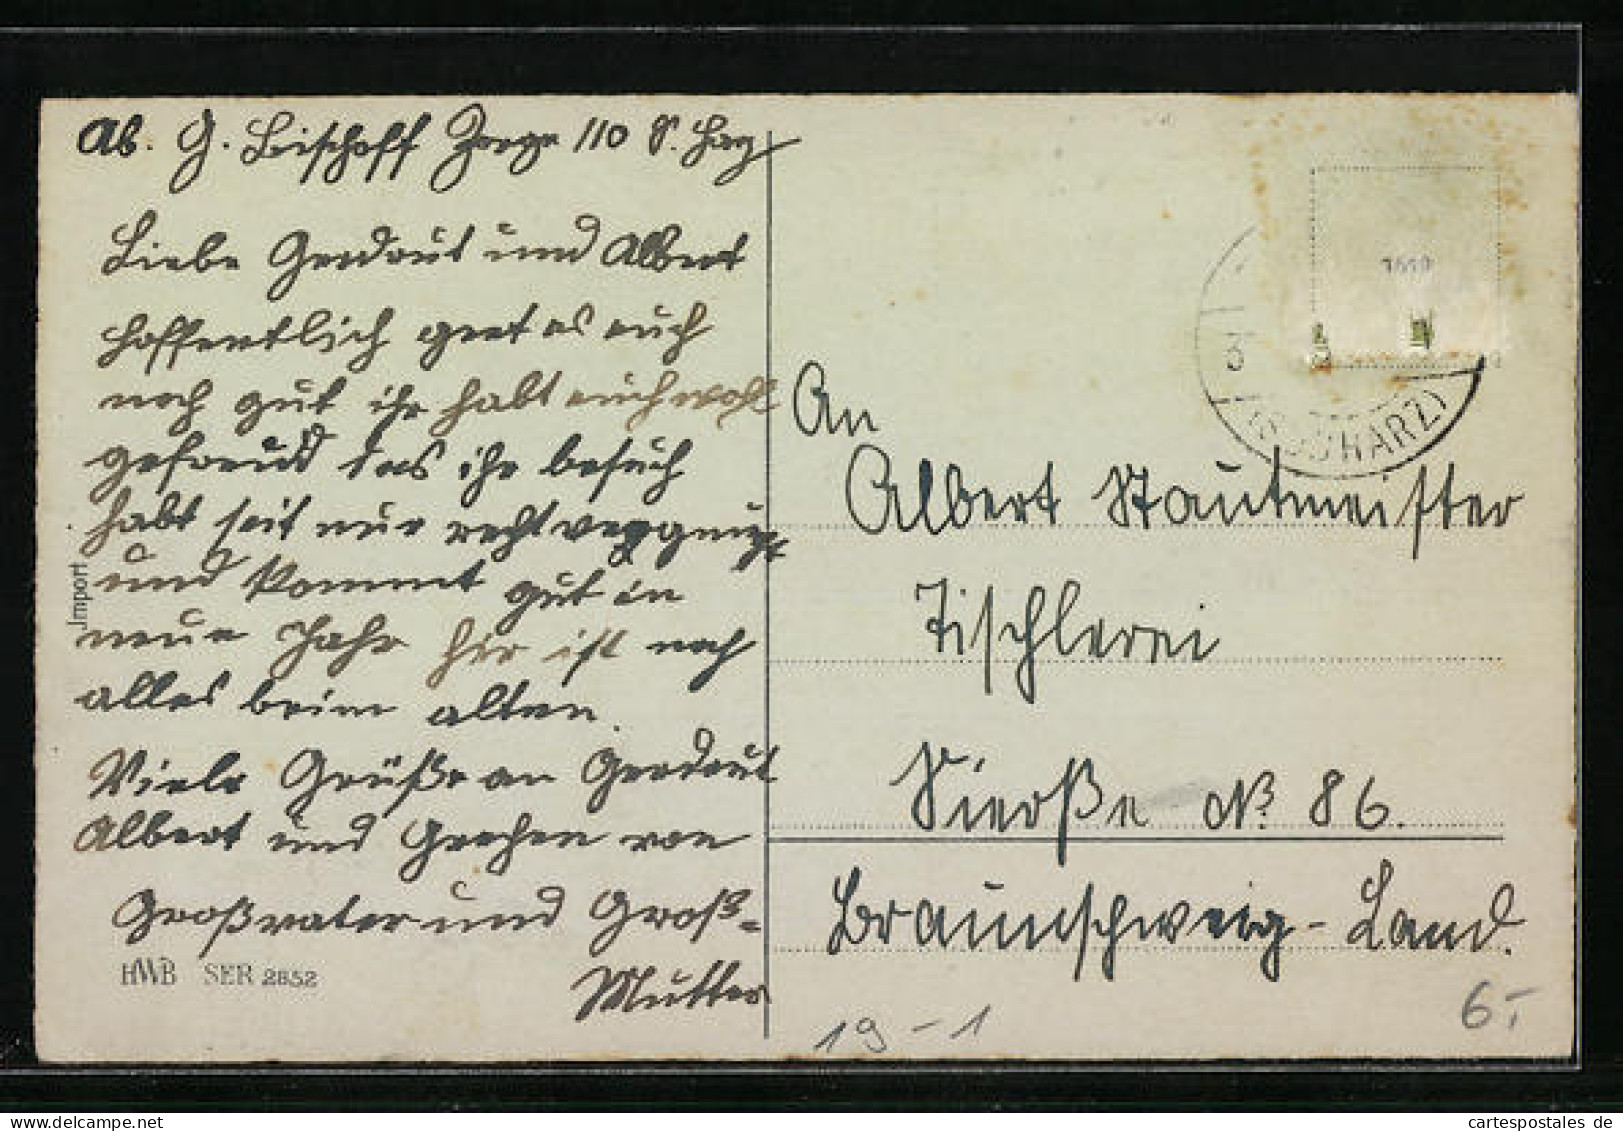 Ab. G. Bischoff Zorge 110 S. Harz
Liebe Gerdraut und Albert
Hoffentlich geet es euch
noch gut ihr habt euch wohl
gefreud das ihr besuch
habt seit nur recht vergnügt
und kommt gut in
neue Jahr hir ist noch
alles beim alten.
Viele Grüße an Gerdraut
Albert und Grehen von
Großvater und Groß=
Mutter
Import
HWB SER 2852
An
Albert Stautmeister
Tischlerei
Sierße No. 86.
Braunschweig-Land.
(SÜDHARZ)
3
19-1
6,-
cartespostales de